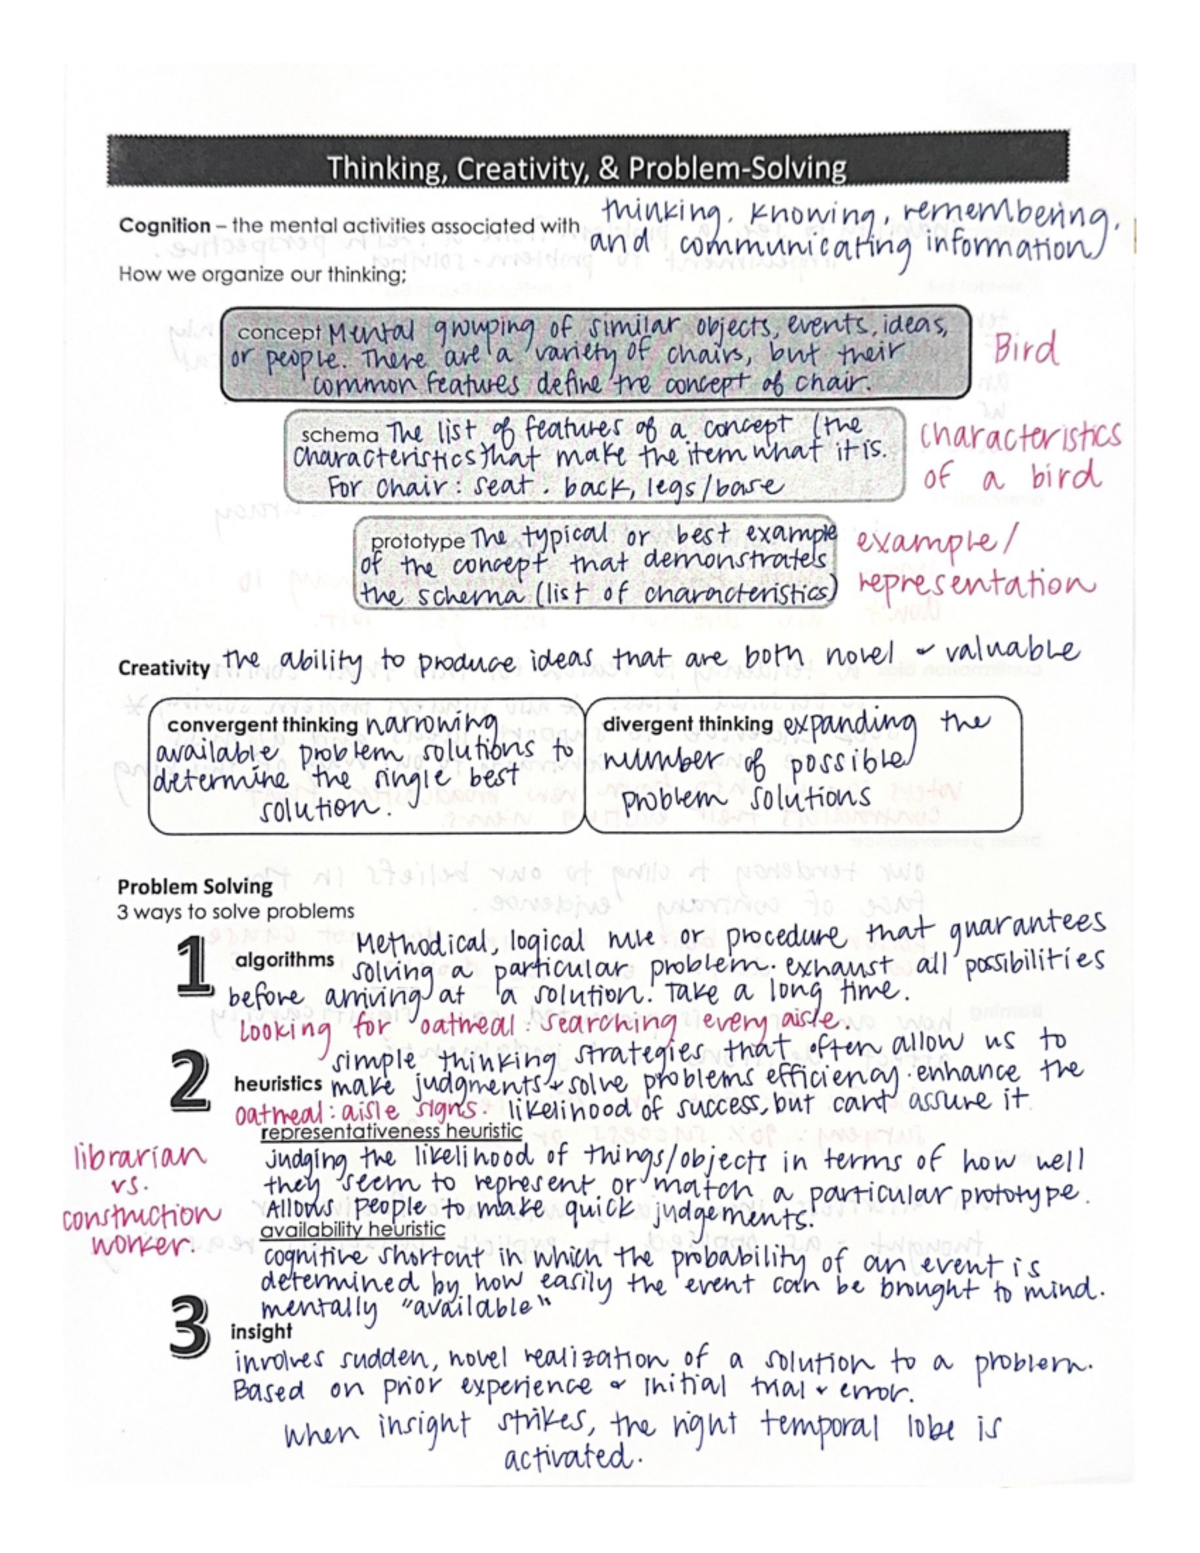 Thinking, Creativity, & Problem-Solving
Cognition – the mental activities associated with thinking, knowing, remembering,
and communicating information
How we organize our thinking;
concept Mental grouping of similar objects, events, ideas,
or people. There are a variety of chairs, but their
common features define the concept of chair.
Bird
schema The list of features of a concept (the
characteristics that make the item what it is.
For chair: seat, back, legs/base
characteristics
of a bird
prototype The typical or best example
of the concept that demonstrates
the schema (list of characteristics)
example/
representation
Creativity the ability to produce ideas that are both novel & valuable
convergent thinking narrowing
available problem solutions to
determine the single best
solution.
divergent thinking expanding the
number of possible
problem solutions
Problem Solving
3 ways to solve problems
1 algorithms Methodical, logical rule or procedure that guarantees
solving a particular problem. exhaust all possibilities
before arriving at a solution. Take a long time.
Looking for oatmeal: searching every aisle.
2 heuristics simple thinking strategies that often allow us to
make judgments & solve problems efficiency. enhance the
oatmeal: aisle signs. likelihood of success, but can't assure it
representativeness heuristic
judging the likelihood of things/objects in terms of how well
they seem to represent or match a particular prototype.
Allows people to make quick judgements.
librarian
vs.
construction
worker.
availability heuristic
cognitive shortcut in which the probability of an event is
determined by how easily the event can be brought to mind.
mentally "available"
3 insight
involves sudden, novel realization of a solution to a problem.
Based on prior experience & initial trial & error.
When insight strikes, the right temporal lobe is
activated.